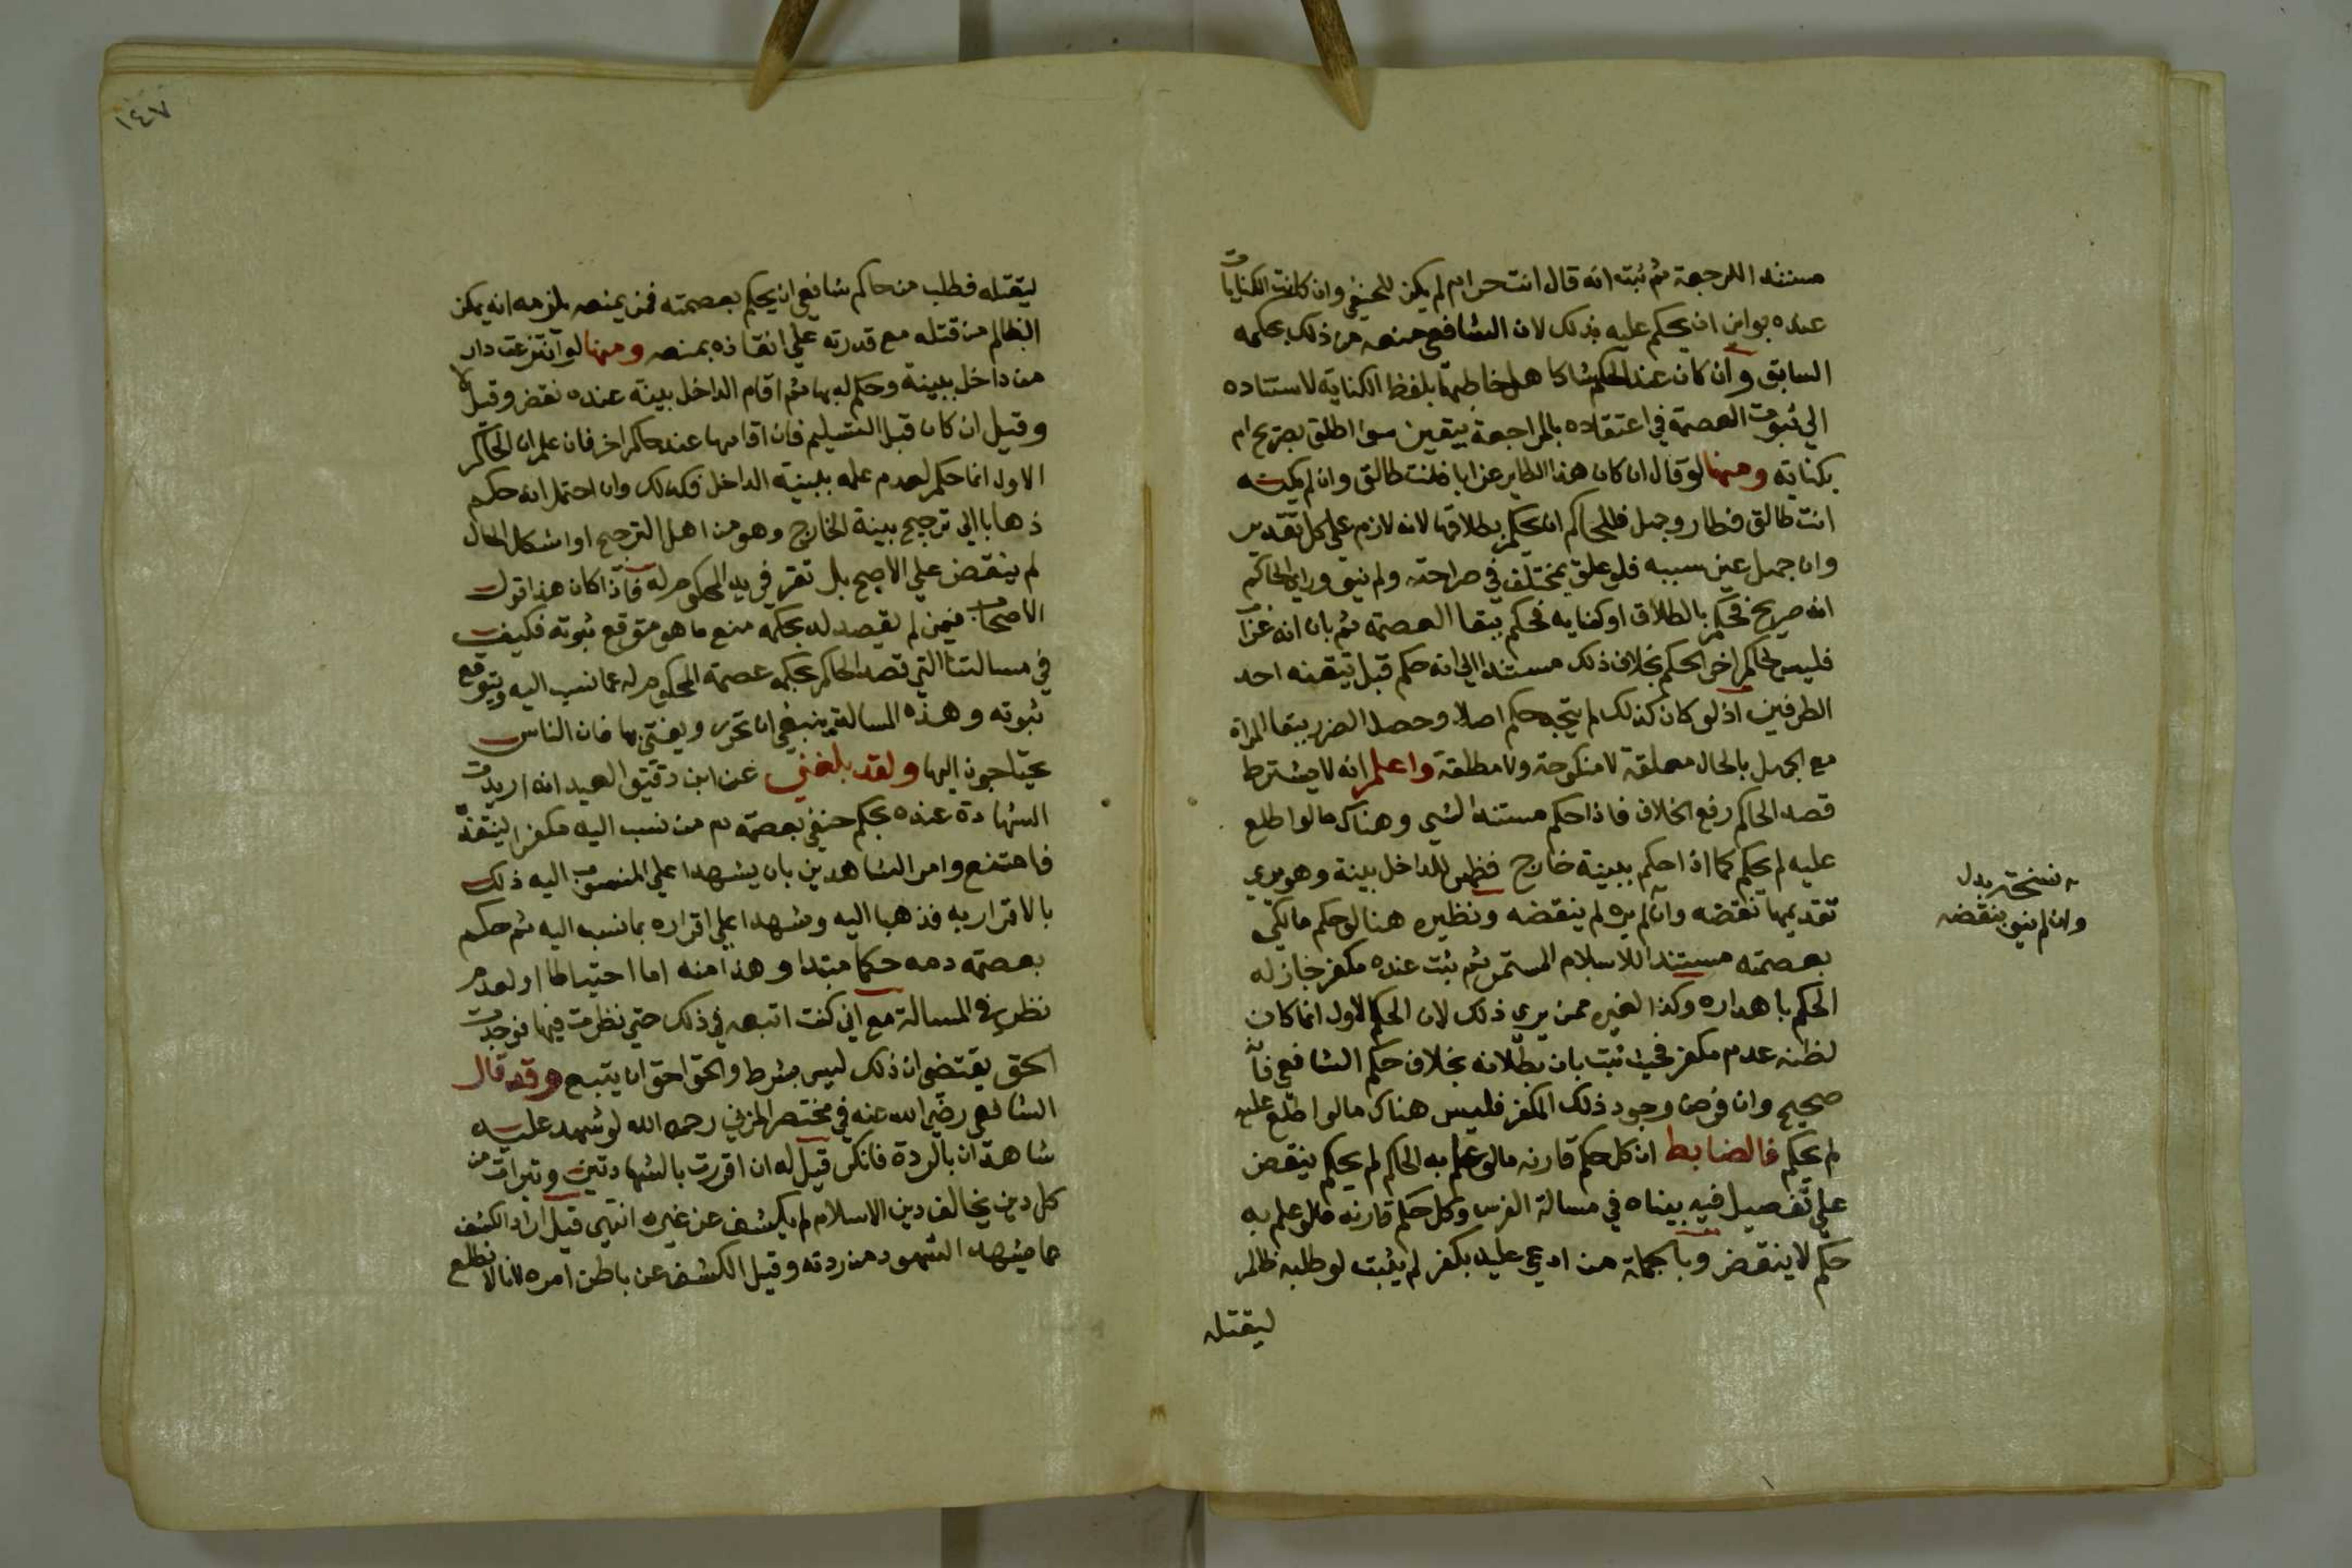 مستندا للرجعة ثم ثبت انه قال انت حرام لم يكن للحنفي وان كانت الكنايات
عنده بواين ان يحكم عليه بذلك لان الشافعي منعه من ذلك بحكمه
السابق وان كان عند الحكم شاكا هل خاطبها بلفظ الكناية لاستناده
الي ثبوت العصمة في اعتقاده بالمراجعة بيقين سوا اطلق بصريح ام
بكناية ومنها لو قال ان كان هذا الطاير غرابا فانت طالق وان لم يكنه
انت طالق فطار وجهل فللحاكم ان يحكم بطلاقها لانه لازم علي كل تقدير
وان جهل عين سببه فلو علق بمختلف في صراحته ولم ينو وراي الحاكم
انه صريح فحكم بالطلاق او كنايه فحكم ببقا العصمة ثم بان انه غراب
فليس لحاكم اخر الحكم بخلاف ذلك مستندا الي انه حكم قبل تيقنه احد
الطرفين اذ لو كان كذلك لم يتجه حكم اصلا وحصل الضرر ببقا المراة
مع الجهل بالحال معلقة لا منكوحة ولا مطلقة واعلم انه لا يشترط
قصد الحاكم رفع الخلاف فاذا حكم مستندا لشي وهناك ما لو اطلع
عليه لم يحكم كما اذا حكم ببينة خارج فظهر للداخل بينة وهو يري
تقديمها نقضه وان لم يره لم ينقضه ونظيره هنا لو حكم مالكي
بعصمته مستندا للاسلام المستمر ثم ثبت عنده مكفر جاز له
الحكم باهداره وكذا لغيره ممن يري ذلك لان الحكم الاول انما كان
لظنه عدم مكفر فحيث ثبت بان بطلانه بخلاف حكم الشافعي فانه
صحيح وان فرض وجود ذلك المكفر فليس هناك ما لو اطلع عليه
لم يحكم فالضابط ان كل حكم قارنه ما لو علم به الحاكم لم يحكم ينقض
علي تفصيل فيه بيناه في مسالة الفرس وكل حكم قارنه ما لو علم به
حكم لا ينقض وبالجملة من ادعي عليه بكفر لم يثبت لو طلبه ظالم
ليقتله
نسخة بدل
وان لم ينو ينقضه
١٤٧
ليقتله فطلب من حاكم شافعي ان يحكم بعصمته فمن يمنعه يلزمه انه يمكن
الظالم من قتله مع قدرته علي انقاذه بمنعه ومنها لو انتزعت دار
من داخل ببينة وحكم له بها ثم اقام الداخل بينة عنده نقض وقيل لا
وقيل ان كان قبل التسليم فان اقامها عند حاكم اخر فان علم ان الحاكم
الاول انما حكم لعدم علمه ببينة الداخل فكذلك وان احتمل انه حكم
ذهابا الي ترجيح بينة الخارج وهو من اهل الترجيح او اشكل الحال
لم ينقض علي الاصح بل تقر في يد المحكوم له فاذا كان هذا قول
الاصحاب فيمن لم يقصد له بحكمه منع ما هو متوقع ثبوته فكيف
في مسالتنا التي قصد الحاكم بحكمه عصمة المحكوم له عما نسب اليه ويتوقع
ثبوته وهذه المسالة ينبغي ان تحرر ويفتي بها فان الناس
يحتاجون اليها ولقد بلغني عن ابن دقيق العيد انه اريدت
الشهادة عنده بحكم حنفي بعصمة دم من نسب اليه مكفر لينفذه
فامتنع وامر الشاهدين بان يشهدا علي المنسوب اليه ذلك
بالاقرار به فذهبا اليه وشهدا علي اقراره بما نسب اليه ثم حكم
بعصمة دمه حكما مبتدا وهذا منه اما احتياطا او لعدم
نظره في المسالة مع اني كنت اتبعه في ذلك حتي نظرت فيها فوجدت
الحق يقتضي ان ذلك ليس بشرط والحق احق ان يتبع وقد قال
الشافعي رضي الله عنه في مختصر المزني رحمه الله لو شهد عليه
شاهدان بالردة فانكر قيل له ان اقررت بالشهادتين وتبرات من
كل دين يخالف دين الاسلام لم يكشف عن غيره انتهي قيل اراد الكشف
عما شهد الشهود من ردته وقيل الكشف عن باطن امره لانا لا نطلع